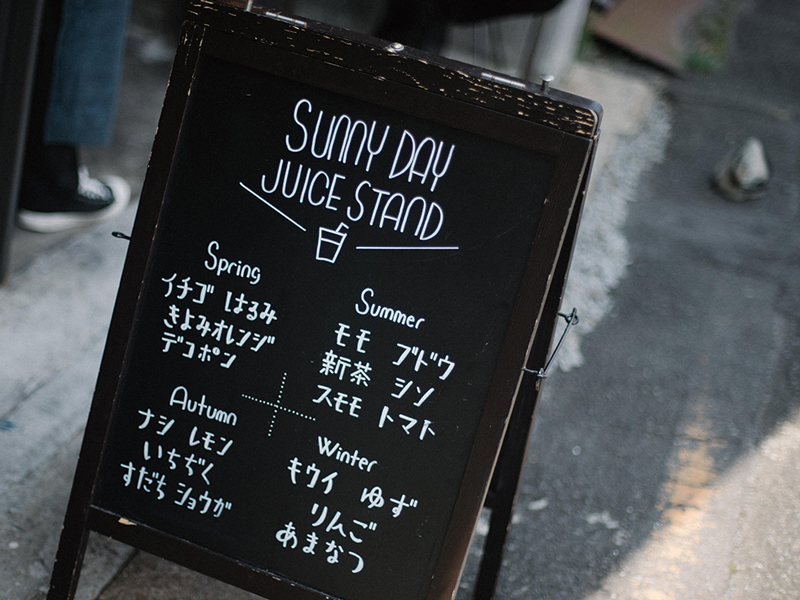 SUNNY DAY
JUICE STAND
Spring
イチゴ はるみ
きよみオレンジ
デコポン
Summer
モモ ブドウ
新茶 シソ
スモモ トマト
Autumn
ナシ レモン
いちぢく
すだち ショウガ
Winter
キウイ ゆず
りんご
あまなつ